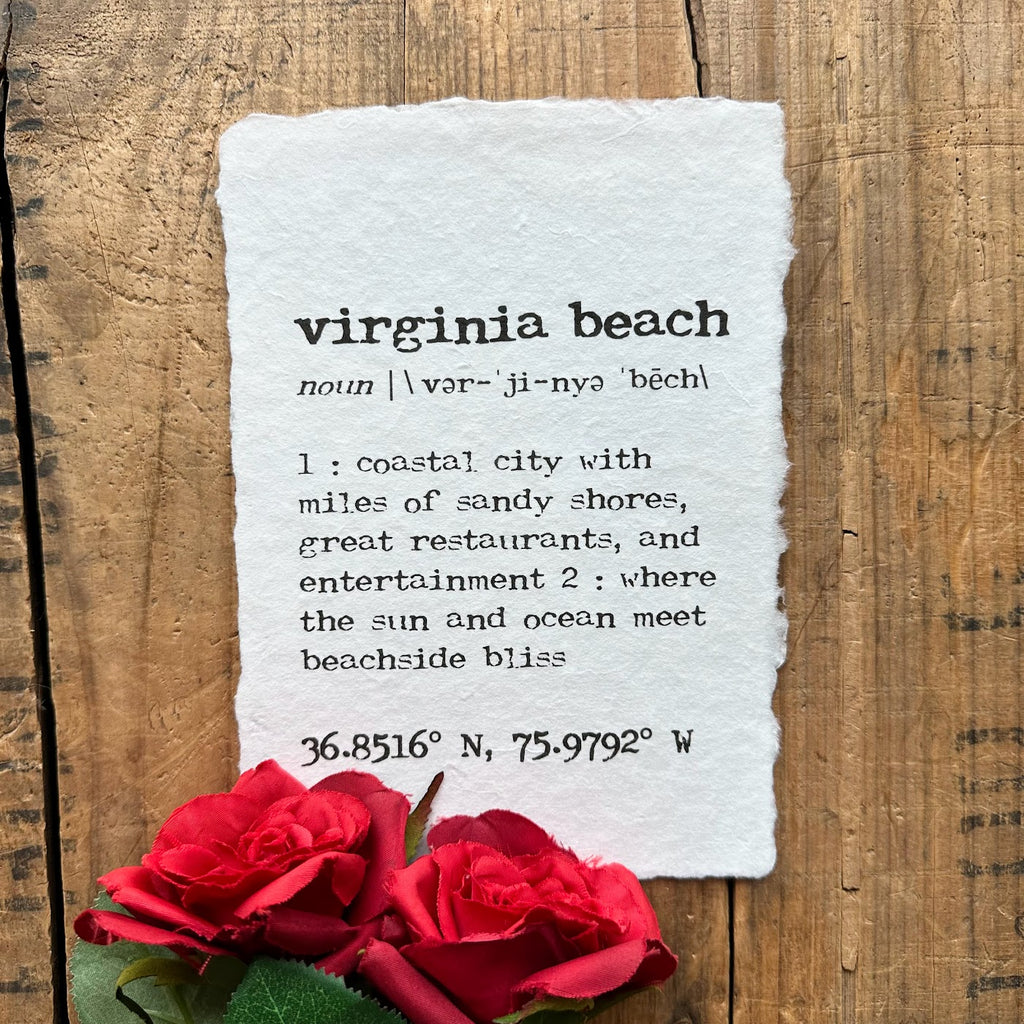 virginia beach
noun | \ vər-ˈji-nyə ˈbēch\
1 : coastal city with
miles of sandy shores,
great restaurants, and
entertainment 2 : where
the sun and ocean meet
beachside bliss
36.8516° N, 75.9792° W